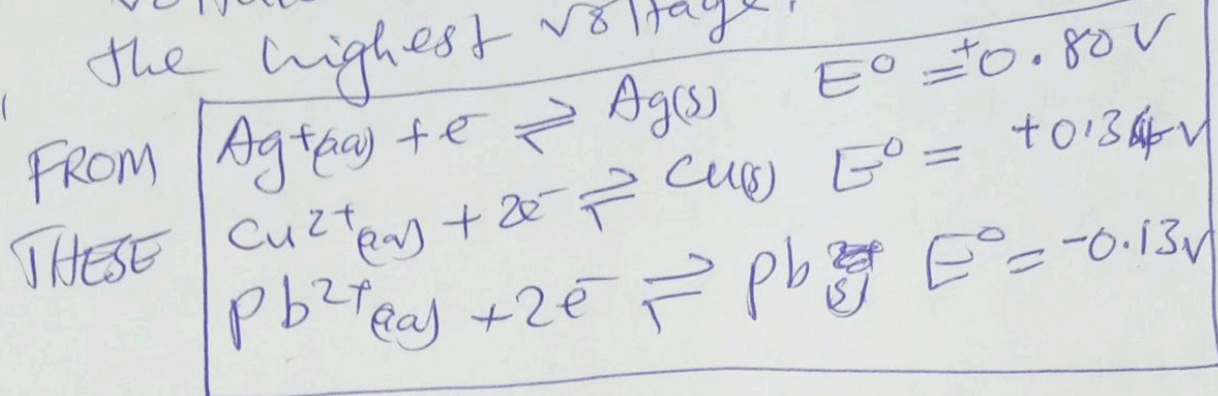 the highest voltage.
FROM THESE
Ag+(aq) + e- ⇌ Ag(s) E° = +0.80V
Cu2+(aq) + 2e- ⇌ Cu(s) E° = +0.34V
Pb2+(aq) + 2e- ⇌ Pb (s) E° = -0.13V